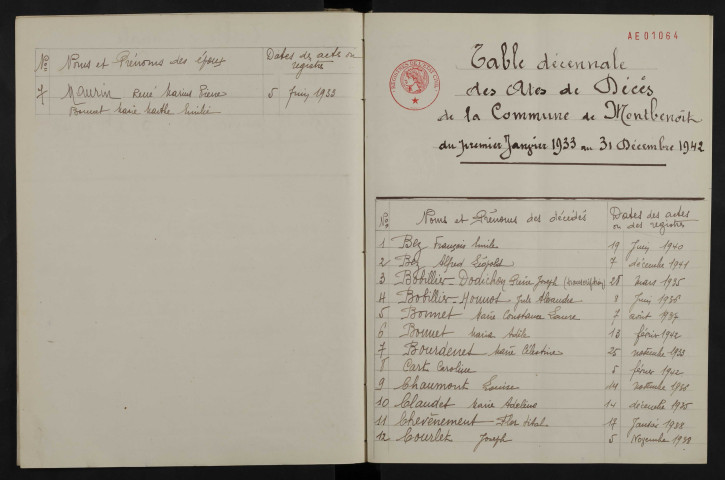 Nos Noms et Prénoms des époux Dates des actes ou registres
7 Maurin René Marius Pierre 5 Juin 1933
Bonnet Marie Marthe Emilie
AE01064
Table décennale
des Actes de Décés
de la Commune de Montbenoit
du premier Janvier 1933 au 31 Décembre 1942
Nos Noms et Prénoms des décédés Dates des actes ou des registres
1 Bez François Emile 19 Juin 1940
2 Bez Alfred Léopold 7 décembre 1941
3 Bobillier-Dodichon Pierre Joseph 28 mars 1935
4 Bobillier-Monnot Jule Alexandre 8 Juin 1936
5 Bonnet Marie Constance Laure 7 août 1937
6 Bonnet Maria Adèle 13 février 1942
7 Bourdenet Marie Célestine 25 novembre 1933
8 Cart Caroline 5 février 1942
9 Chaumont Louise 14 novembre
10 Claudet Marie 14 décembre 1935
11 Chevènement Vital 17 Janvier 1938
12 Courlet Joseph 5 Novembre 1938